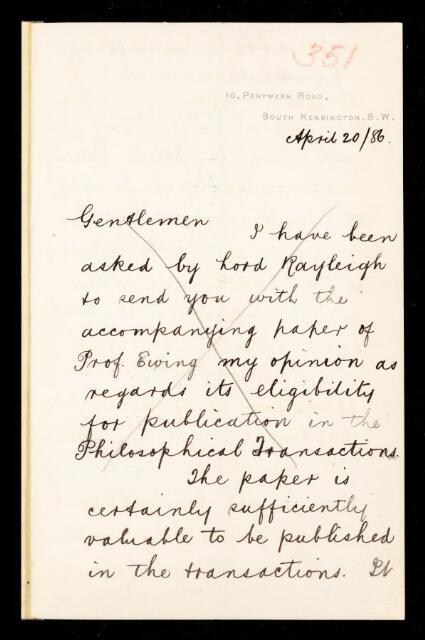 351
10, Penywern Road,
South Kensington. S.W.
April 20/86.
Gentlemen
I have been
asked by Lord Rayleigh
to send you with the
accompanying paper of
Prof. Ewing my opinion as
regards its eligibility
for publication in the
Philosophical Transactions.
The paper is
certainly sufficiently
valuable to be published
in the transactions. It